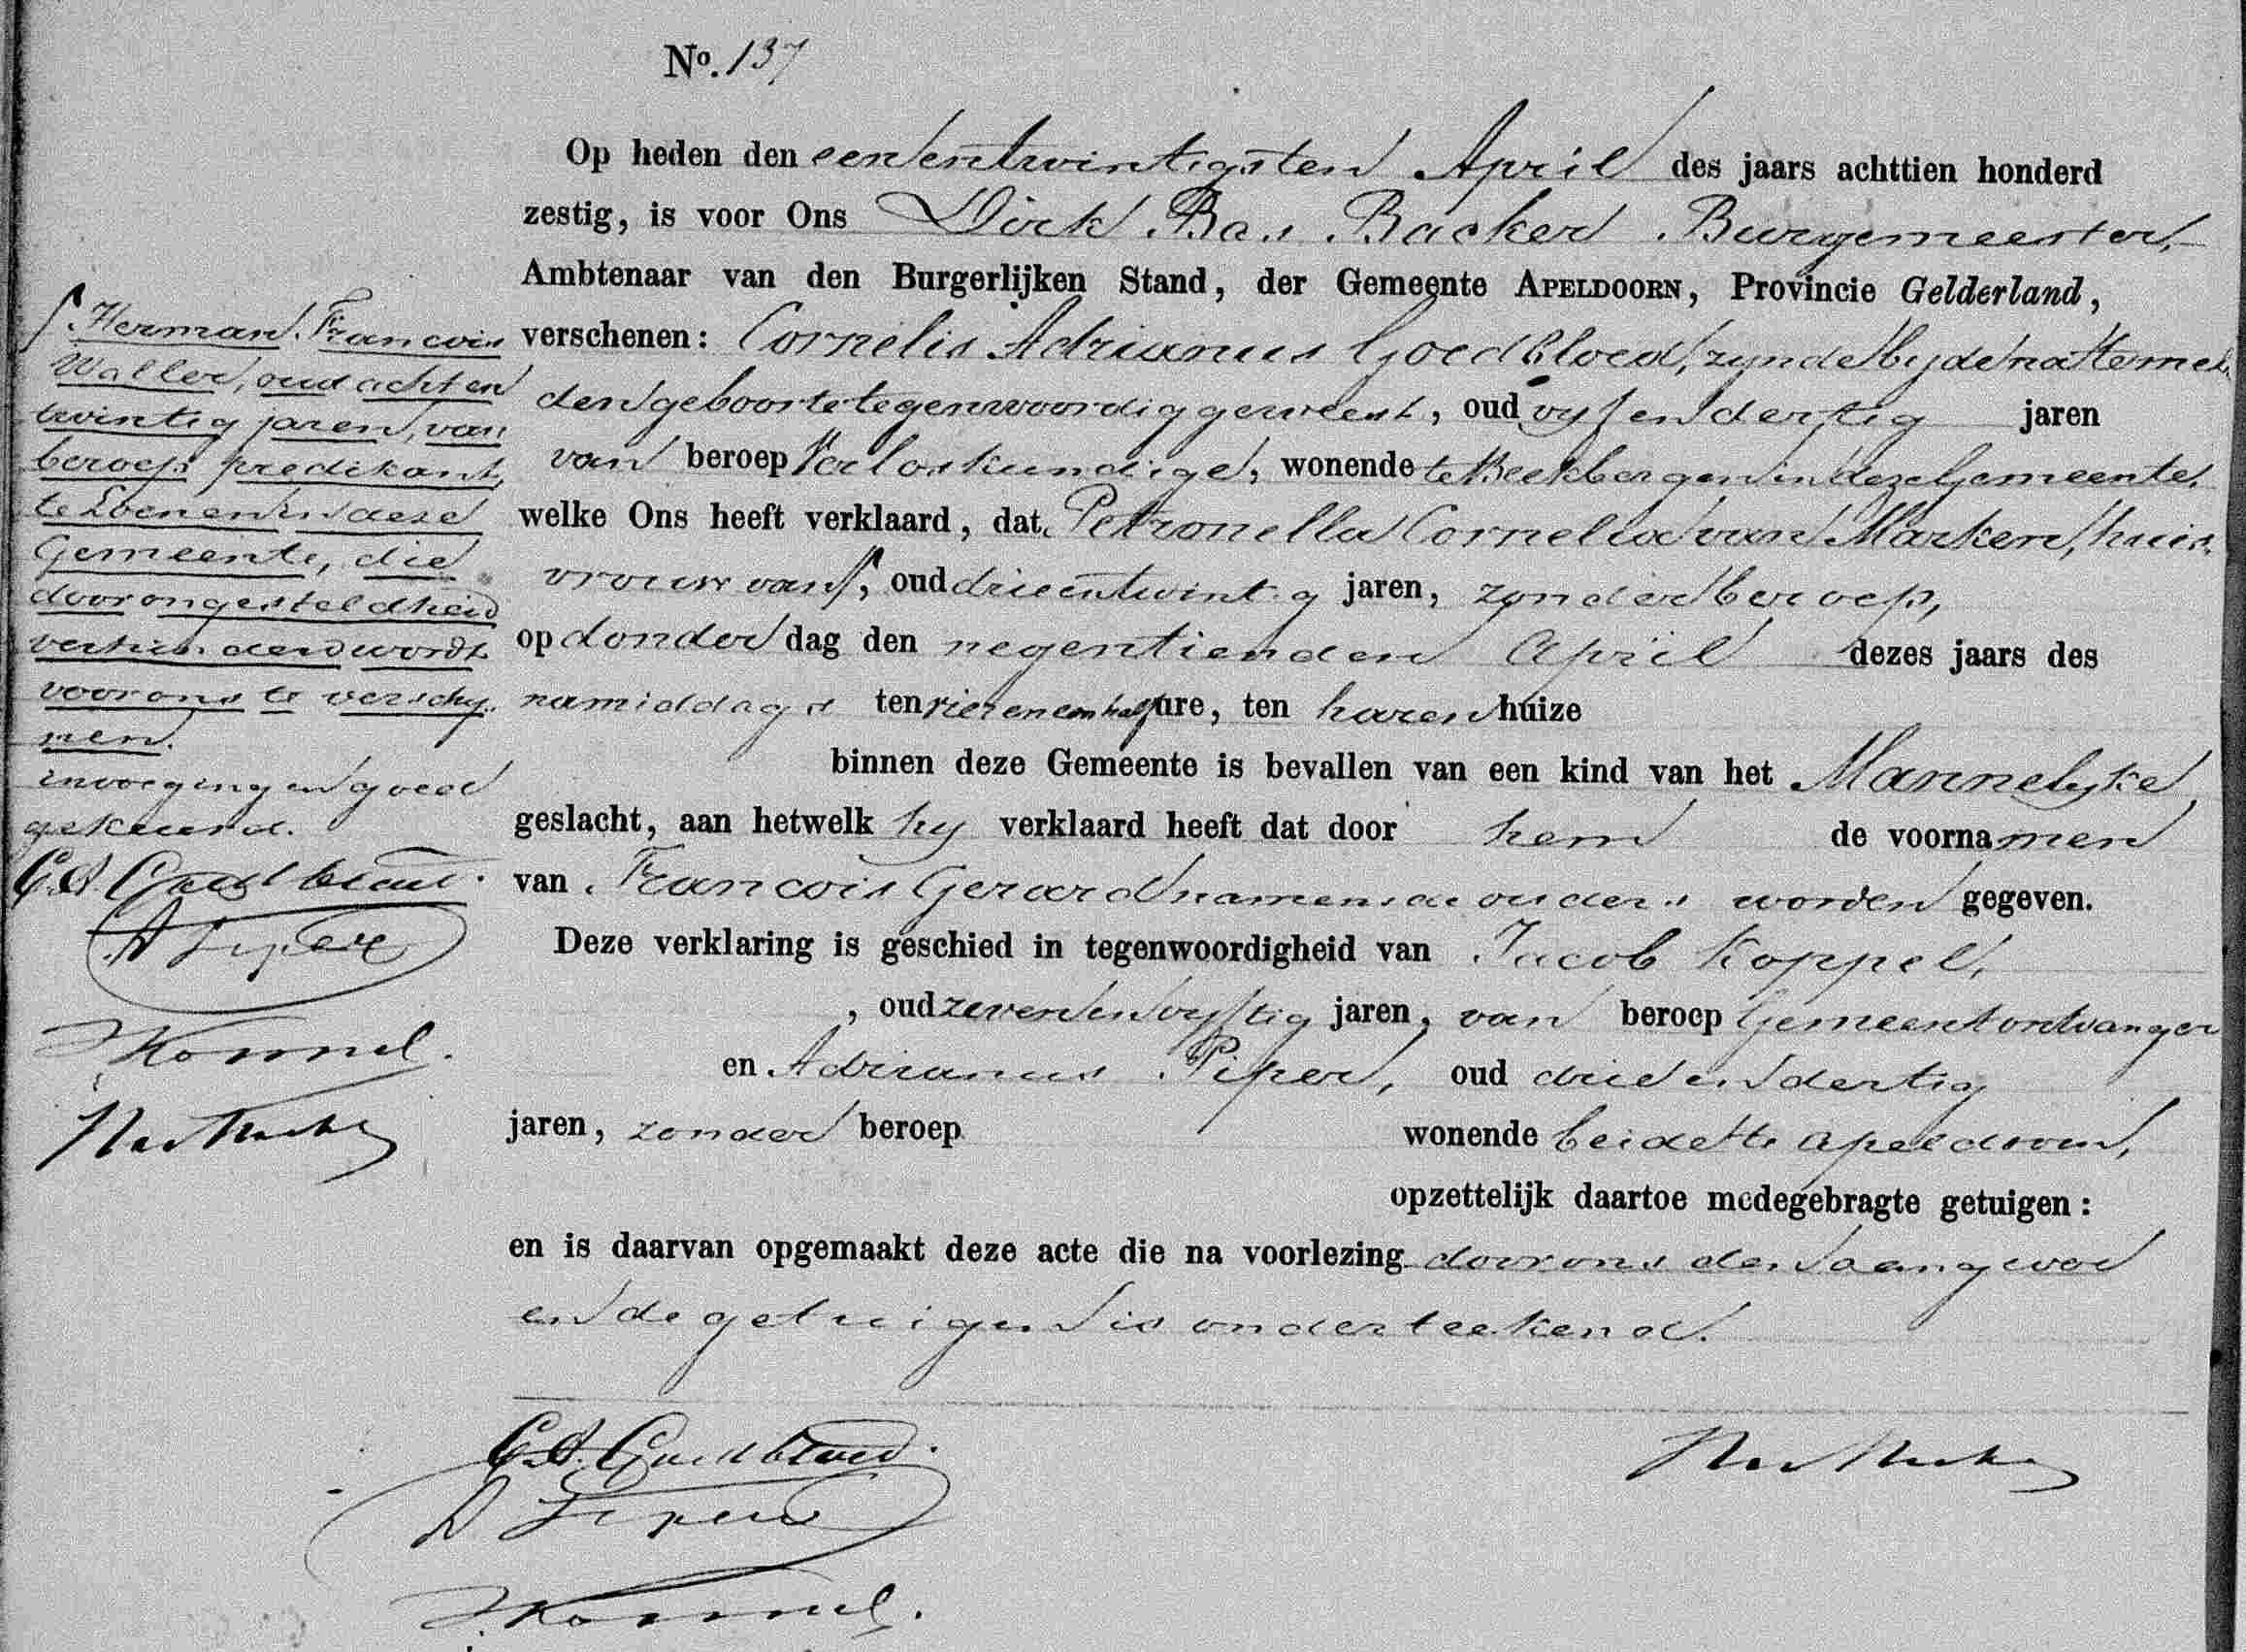 No. 137
Op heden den eenentwintigsten April des jaars achttien honderd
zestig, is voor Ons Dirk Bas Backer Burgemeester,
Ambtenaar van den Burgerlijken Stand, der Gemeente APELDOORN, Provincie Gelderland,
verschenen: Cornelis Adrianus Goedbloed, zynde by de na te mel-
den geboorte tegenwoordig geweest, oud vyfendertig jaren
van beroep Verloskundige, wonende te Beekbergen in deze Gemeente,
welke Ons heeft verklaard, dat Petronella Cornelia van Marken, huis-
vrouw van ƒ, oud drieentwintig jaren, zonder beroep,
op donderdag den negentienden April dezes jaars des
namiddags ten vier en een half ure, ten haren huize
binnen deze Gemeente is bevallen van een kind van het Mannelyke
geslacht, aan hetwelk hy verklaard heeft dat door hem de voornamen
van Francois Gerard namens de ouders worden gegeven.
Deze verklaring is geschied in tegenwoordigheid van Jacob Koppel,
, oud zevenenvyftig jaren, van beroep Gemeentontvanger
en Adrianus Piper, oud drieendertig
jaren, zonder beroep wonende beide te Apeldoorn,
opzettelijk daartoe medegebragte getuigen:
en is daarvan opgemaakt deze acte die na voorlezing door ons den aangever
en de getuigen is onderteekend.
ƒ Herman Francois
Waller, oud achten
twintig jaren, van
beroep predikant,
te Loenen in deze
Gemeente, die
door ongesteldheid
verhinderd wordt
voor ons te verschy-
nen.
invoeging goed
gekeurd.
C.A. Goedbloed.
A Piper
J Koppel.
Bas Backer
C.A. Goedbloed.
Bas Backer
A Piper
J. Koppel.